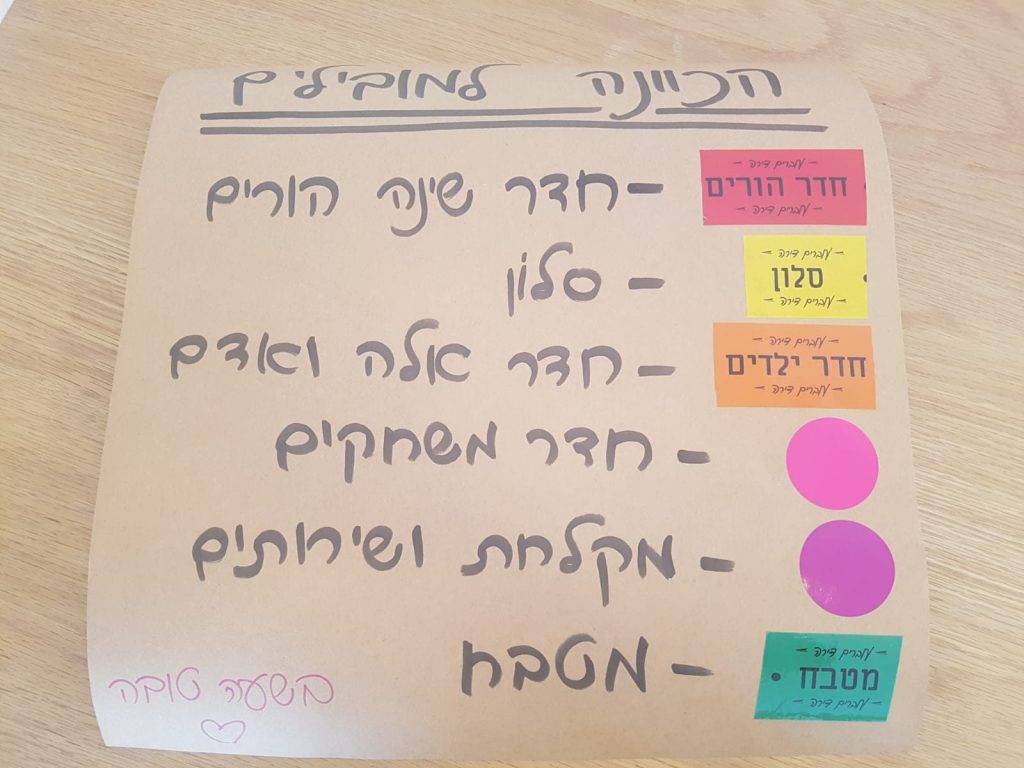 הכוונה למובילים
עוברים דירה
חדר הורים
עוברים דירה
- חדר שינה הורים
עוברים דירה
סלון
עוברים דירה
- סלון
עוברים דירה
חדר ילדים
עוברים דירה
- חדר אלה ואדם
- חדר משחקים
- מקלחת ושירותים
עוברים דירה
מטבח
עוברים דירה
- מטבח
בשעה טובה